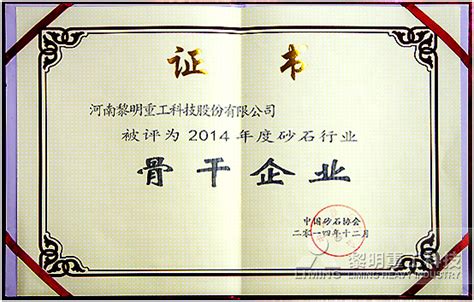 证书
河南黎明重工科技股份有限公司
被评为2014年度砂石行业
骨干企业
中国砂石协会
二〇一四年十二月
黎明重工科技
LIMING HEAVY INDUSTRY